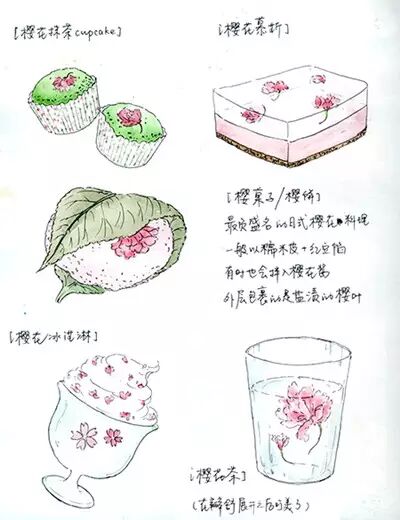 [樱花抹茶cupcake]
[樱花慕斯]
[樱菓子/樱饼]
最负盛名的日式樱花料理
一般以糯米皮+红豆馅
有时也会拌入樱花酱
外层包裹的是盐渍的樱叶
[樱花冰淇淋]
[樱花茶]
(花瓣舒展开之后可美了)